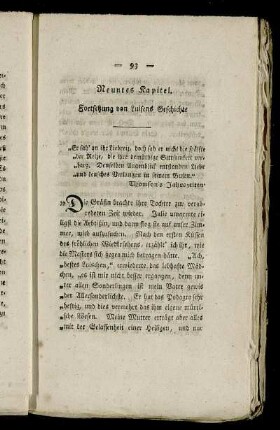 — 93 —
Neuntes Kapitel.
Fortsetzung von Luisens Geschichte
„Er sah an ihr Liebreiz, doch sah er nicht die Hälfte
„der Reize, die ihre demüthige Sittsamkeit ver-
„barg. Denselben Augenblick entstanden Liebe
„und keusches Verlangen in seinem Busen.“
Thomson's Jahreszeiten.
„Die Gräfin brachte ihre Tochter zur verab-
redeten Zeit wieder. Julie umarmte
tigst die Aebtißin, und dann flog sie auf unser Zim-
mer, mich aufzusuchen. Nach den ersten Küssen
des fröhlichen Wiedersehens, erzählt' ich ihr, wie
die Masters sich gegen mich betragen hätte. „Ach,
„bestes Luischen,“ erwiederte das lebhafte Mäd-
chen, „es ist mir nicht besser ergangen, denn un-
„ter allen Sonderlingen ist mein Vater gewiß
„der Allersonderlichste. Er hat das Podagra schr-
„cklich, und das vermehrt das ihm eigene mürri-
„sche Wesen. Meine Mutter erträgt aber alles
„mit der Gelassenheit einer Heiligen, und nur